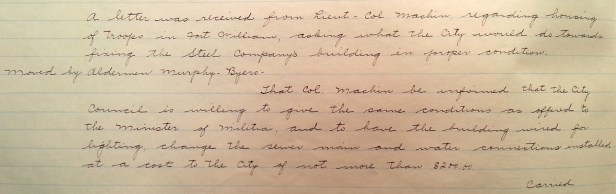 A letter was received from Lieut-Col. Machin, regarding housing
of Troops in Fort William, asking what the City would do towards
fixing the Steel Companys building in proper condition.
Moved by Aldermen Murphy-Byers-
That Col. Machin be informed that the City
Council is willing to give the same conditions as offered to
the Minister of Militia, and to have the building wired for
lighting, change the sewer main and water connections installed
at a cost to the City of not more than $200.00
Carried